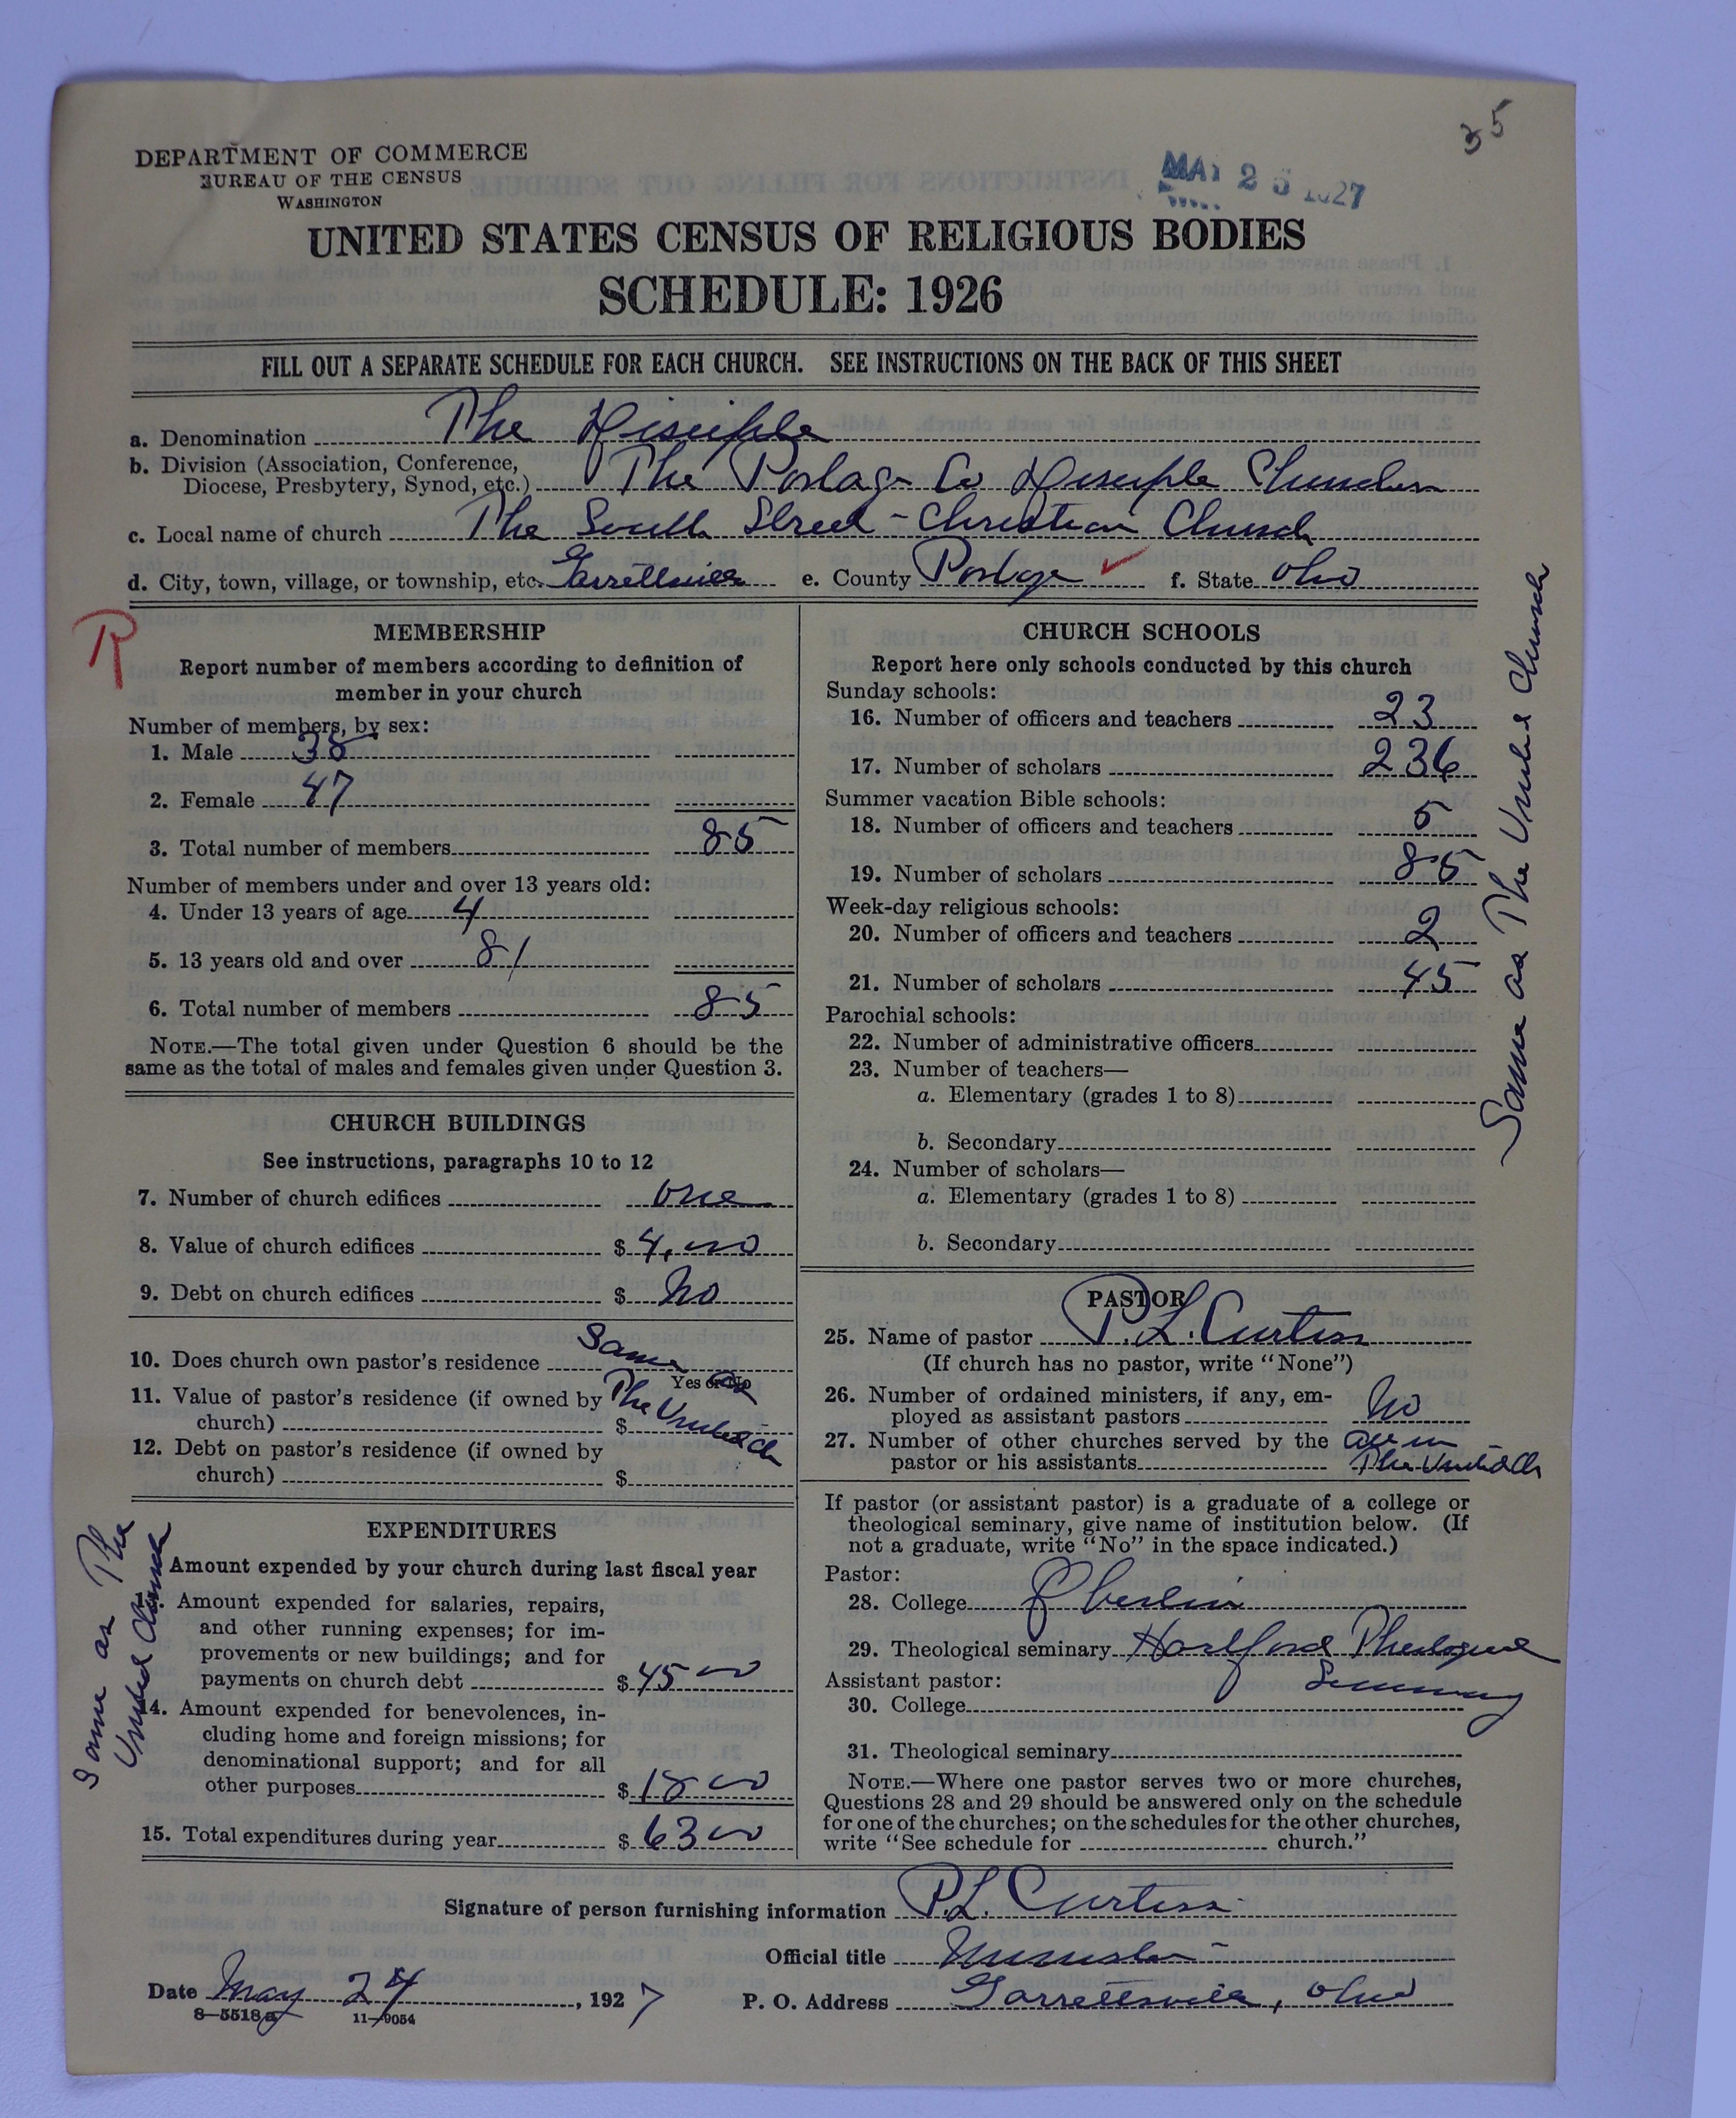 35
DEPARTMENT OF COMMERCE
BUREAU OF THE CENSUS
WASHINGTON
MAY 25 1927
UNITED STATES CENSUS OF RELIGIOUS BODIES
SCHEDULE: 1926
FILL OUT A SEPARATE SCHEDULE FOR EACH CHURCH. SEE INSTRUCTIONS ON THE BACK OF THIS SHEET
a. Denomination The Disciple
b. Division (Association, Conference,
Diocese, Presbytery, Synod, etc.) The Portage Co Disciple Churches
c. Local name of church The South Street - Christian Church
d. City, town, village, or township, etc. Garrettsville e. County Portage f. State Ohio
R
MEMBERSHIP
Report number of members according to definition of
member in your church
Number of members, by sex:
1. Male 38
2. Female 47
3. Total number of members 85
Number of members under and over 13 years old:
4. Under 13 years of age 4
5. 13 years old and over 81
6. Total number of members 85
NOTE.—The total given under Question 6 should be the
same as the total of males and females given under Question 3.
CHURCH BUILDINGS
See instructions, paragraphs 10 to 12
7. Number of church edifices one
8. Value of church edifices $ 4,000
9. Debt on church edifices $ No
10. Does church own pastor's residence Same as
Yes or No
11. Value of pastor's residence (if owned by The United Ch
church) $
12. Debt on pastor's residence (if owned by
church) $
EXPENDITURES
Amount expended by your church during last fiscal year
13. Amount expended for salaries, repairs,
and other running expenses; for im-
provements or new buildings; and for
payments on church debt $ 45 00
14. Amount expended for benevolences, in-
cluding home and foreign missions; for
denominational support; and for all
other purposes $ 18 00
15. Total expenditures during year $ 63 00
Same as The
United Church
CHURCH SCHOOLS
Report here only schools conducted by this church
Sunday schools:
16. Number of officers and teachers 23
17. Number of scholars 236
Summer vacation Bible schools:
18. Number of officers and teachers 5
19. Number of scholars 85
Week-day religious schools:
20. Number of officers and teachers 2
21. Number of scholars 45
Parochial schools:
22. Number of administrative officers
23. Number of teachers—
a. Elementary (grades 1 to 8)
b. Secondary
24. Number of scholars—
a. Elementary (grades 1 to 8)
b. Secondary
Same as The United Church
PASTOR
25. Name of pastor P. L. Curtiss
(If church has no pastor, write "None")
26. Number of ordained ministers, if any, em-
ployed as assistant pastors No
27. Number of other churches served by the all in
pastor or his assistants The United Ch
If pastor (or assistant pastor) is a graduate of a college or
theological seminary, give name of institution below. (If
not a graduate, write "No" in the space indicated.)
Pastor:
28. College Oberlin
29. Theological seminary Hartford Theological
Seminary
Assistant pastor:
30. College
31. Theological seminary
NOTE.—Where one pastor serves two or more churches,
Questions 28 and 29 should be answered only on the schedule
for one of the churches; on the schedules for the other churches,
write "See schedule for church."
Signature of person furnishing information P. L. Curtiss
Official title Minister
Date May 24, 1927 P. O. Address Garrettsville, Ohio
8—5518a 11—9054